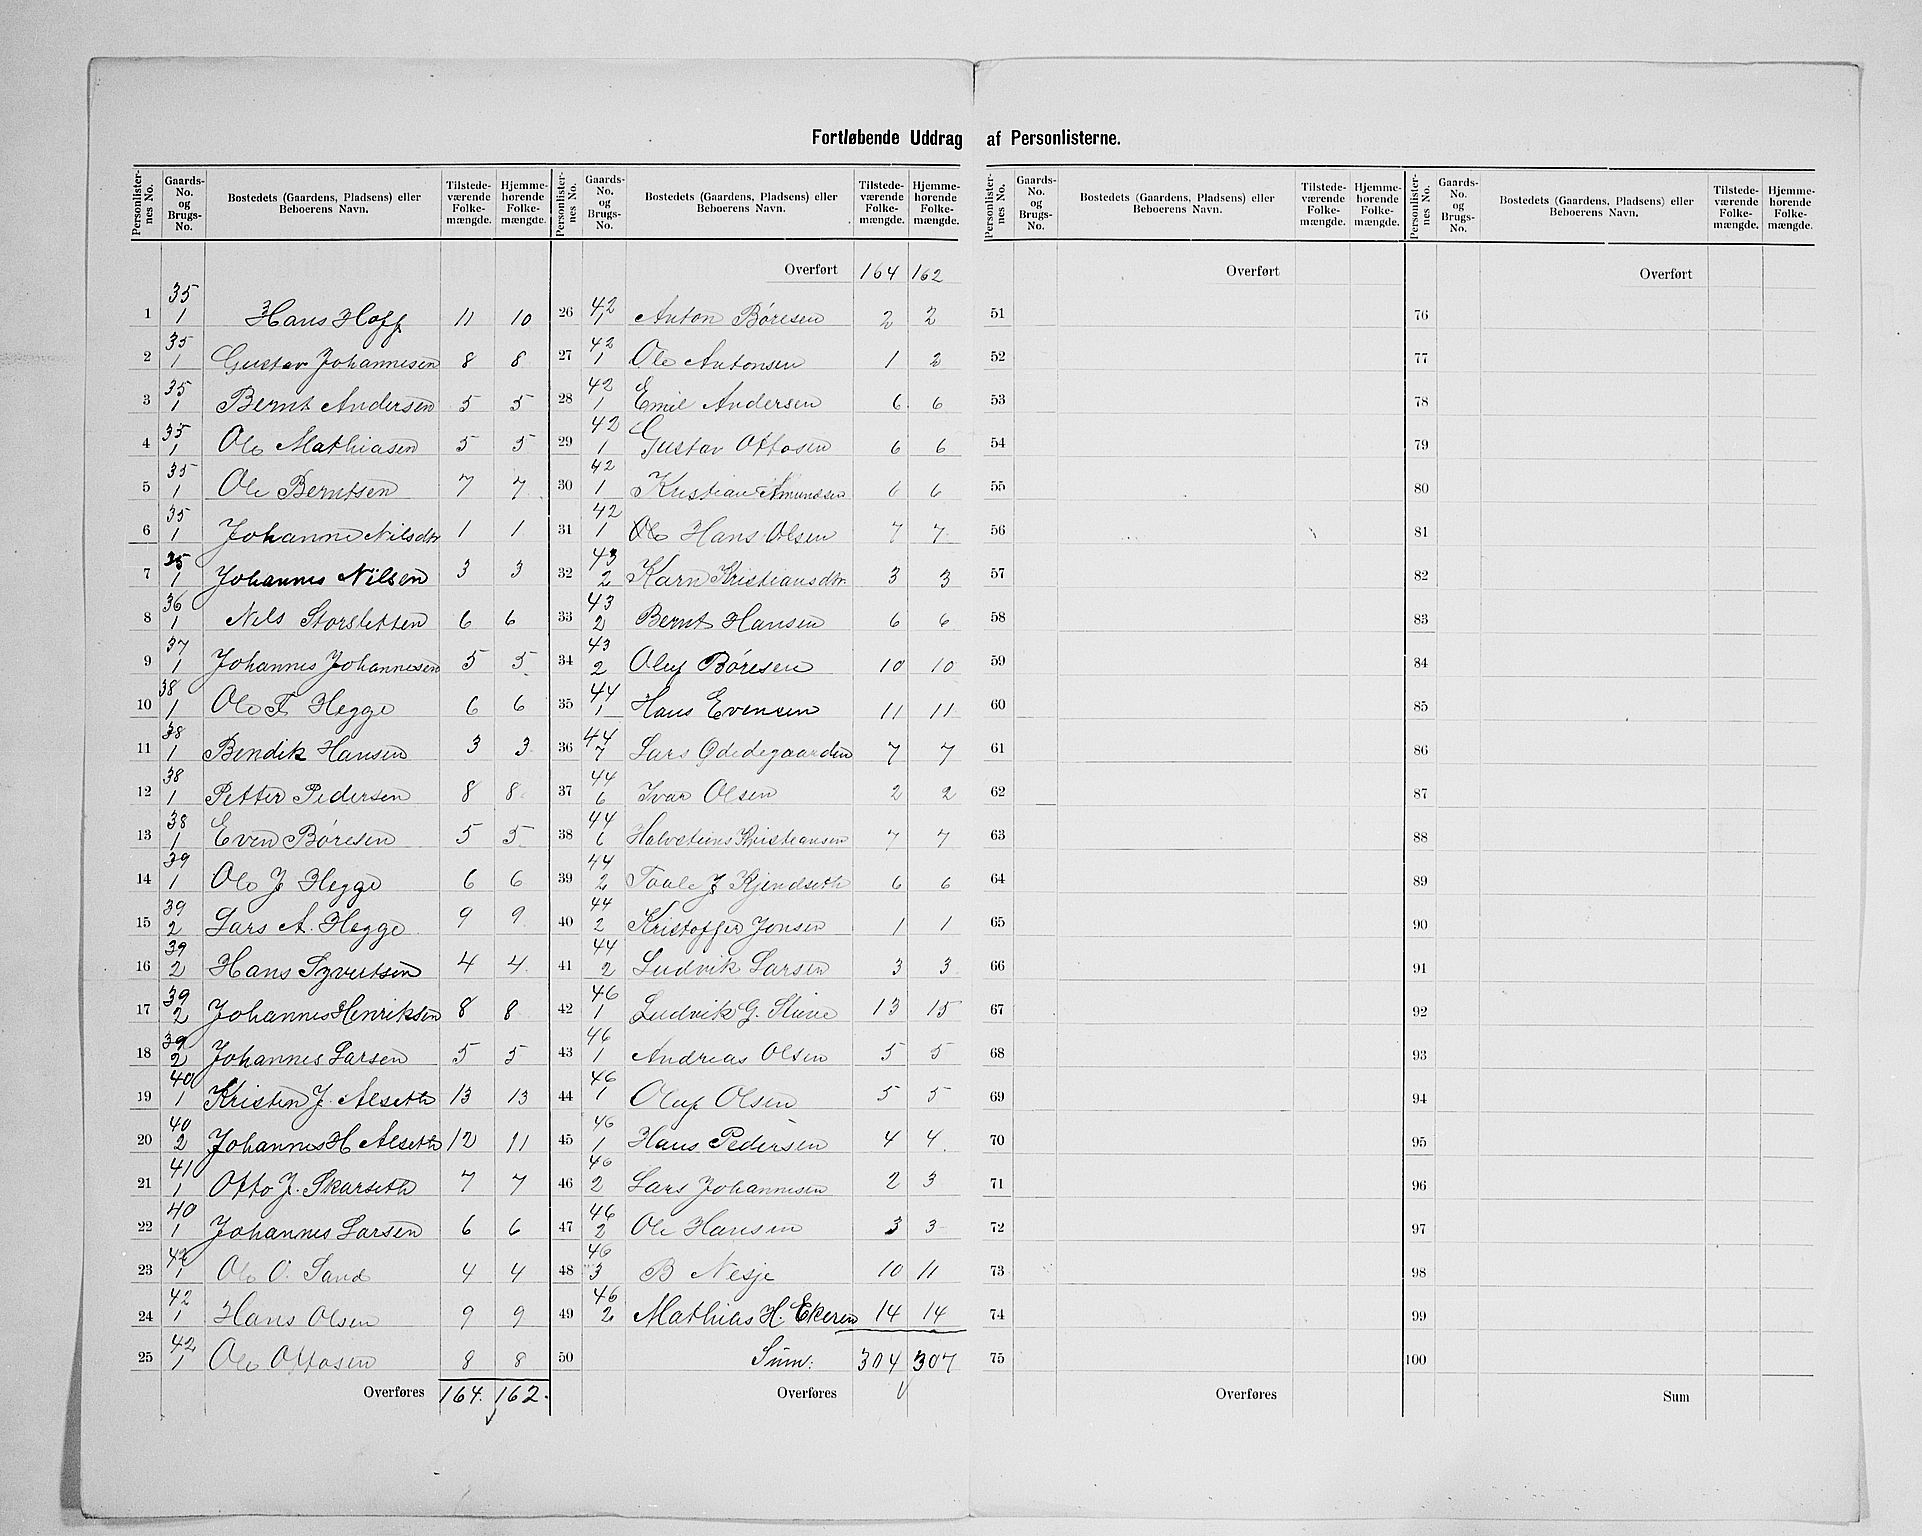 Fortløbende Uddrag af Personlisterne.
Personlisternes No. Gaards-No. og Brugs-No. Bostedets (Gaardens, Pladsens) eller Beboerens Navn. Tilstedeværende Folkemængde. Hjemmehørende Folkemængde.
1 35/1 Hans Hoff 11 10
2 35/1 Gustav Johannesen 8 8
3 35/1 Bernt Andersen 5 5
4 35/1 Ole Mathiasen 5 5
5 35/1 Ole Berntsen 7 7
6 35/1 Johanne Nilsdtr 1 1
7 35/1 Johannes Nilsen 3 3
8 36/1 Nils Storsletten 6 6
9 37/1 Johannes Johannesen 5 5
10 38/1 Ole F Hegge 6 6
11 38/1 Bendik Hansen 3 3
12 38/1 Petter Pedersen 8 8
13 38/1 Even Børesen 5 5
14 39/1 Ole J Hegge 6 6
15 39/2 Lars A. Hegge 9 9
16 39/2 Hans Syvertsen 4 4
17 39/2 Johannes Henriksen 8 8
18 39/2 Johannes Larsen 5 5
19 40/1 Kristen J. Alseth 13 13
20 40/2 Johannes H Alseth 12 11
21 41/1 Otto J. Skarseth 7 7
22 40/1 Johannes Larsen 6 6
23 42/1 Ole O. Sand 4 4
24 42/1 Hans Olsen 9 9
25 42/1 Ole Ottosen 8 8
Overføres 164. 162.
Personlisternes No. Gaards-No. og Brugs-No. Bostedets (Gaardens, Pladsens) eller Beboerens Navn. Tilstedeværende Folkemængde. Hjemmehørende Folkemængde.
Overført 164 162
26 42/1 Anton Børesen 2 2
27 42/1 Ole Antonsen 1 2
28 42/1 Emil Andersen 6 6
29 42/1 Gustav Ottosen 6 6
30 42/1 Kristian Amundsen 6 6
31 42/1 Ole Hans Olsen 7 7
32 43/2 Karn Kristiansdtr. 3 3
33 43/2 Bernt Hansen 6 6
34 43/2 Oluf Børesen 10 10
35 44/1 Hans Evensen 11 11
36 44/7 Lars Ødedegaarden 7 7
37 44/6 Ivar Olsen 2 2
38 44/6 Kristiansen 7 7
39 44/2 Taale J Kjendseth 6 6
40 44/2 Kristoffer Jonsen 1 1
41 44/2 Ludvik Larsen 3 3
42 46/1 Ludvik G. 13 15
43 46/1 Andreas Olsen 5 5
44 46/1 Oluf Olsen 5 5
45 46/1 Hans Pedersen 4 4
46 46/2 Lars Johannesen 2 3
47 46/2 Ole Hansen 3 3
48 46/3 B Nesje 10 11
49 46/2 Mathias H. Ekeren 14 14
50 Sum: 304 307
Overføres
Personlisternes No. Gaards-No. og Brugs-No. Bostedets (Gaardens, Pladsens) eller Beboerens Navn. Tilstedeværende Folkemængde. Hjemmehørende Folkemængde.
Overført
51
52
53
54
55
56
57
58
59
60
61
62
63
64
65
66
67
68
69
70
71
72
73
74
75
Overføres
Personlisternes No. Gaards-No. og Brugs-No. Bostedets (Gaardens, Pladsens) eller Beboerens Navn. Tilstedeværende Folkemængde. Hjemmehørende Folkemængde.
Overført
76
77
78
79
80
81
82
83
84
85
86
87
88
89
90
91
92
93
94
95
96
97
98
99
100
Sum